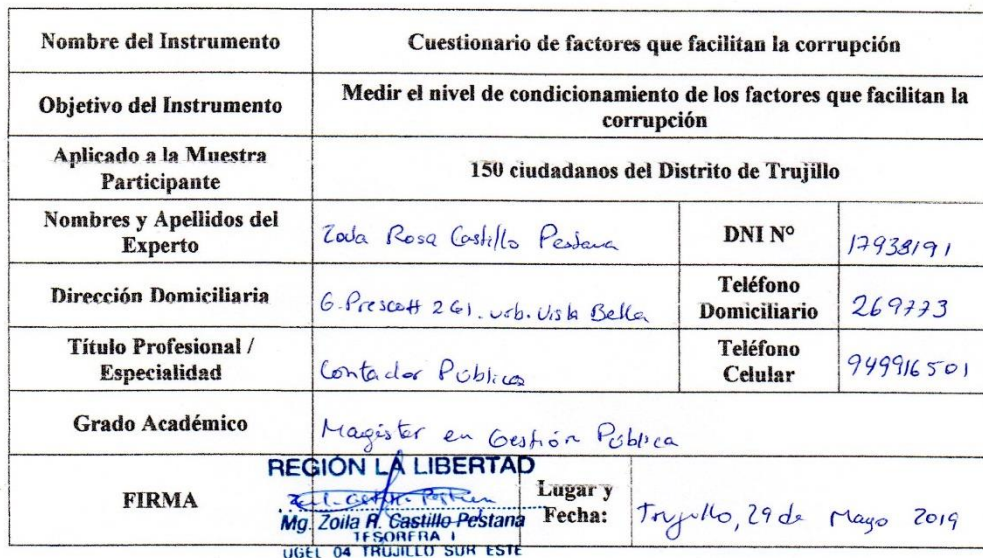 Nombre del Instrumento
Cuestionario de factores que facilitan la corrupción
Objetivo del Instrumento
Medir el nivel de condicionamiento de los factores que facilitan la
corrupción
Aplicado a la Muestra
Participante
150 ciudadanos del Distrito de Trujillo
Nombres y Apellidos del
Experto
Zoila Rosa Castillo Pestana
DNI N°
17938191
Dirección Domiciliaria
G. Prescott 261. urb. Vista Bella
Teléfono
Domiciliario
269773
Título Profesional /
Especialidad
Contador Público
Teléfono
Celular
949916501
Grado Académico
Magister en Gestión Pública
FIRMA
REGIÓN LA LIBERTAD
Mg. Zoila R. Castillo Pestana
TESORERA I
UGEL 04 TRUJILLO SUR ESTE
Lugar y
Fecha:
Trujillo, 29 de Mayo 2019